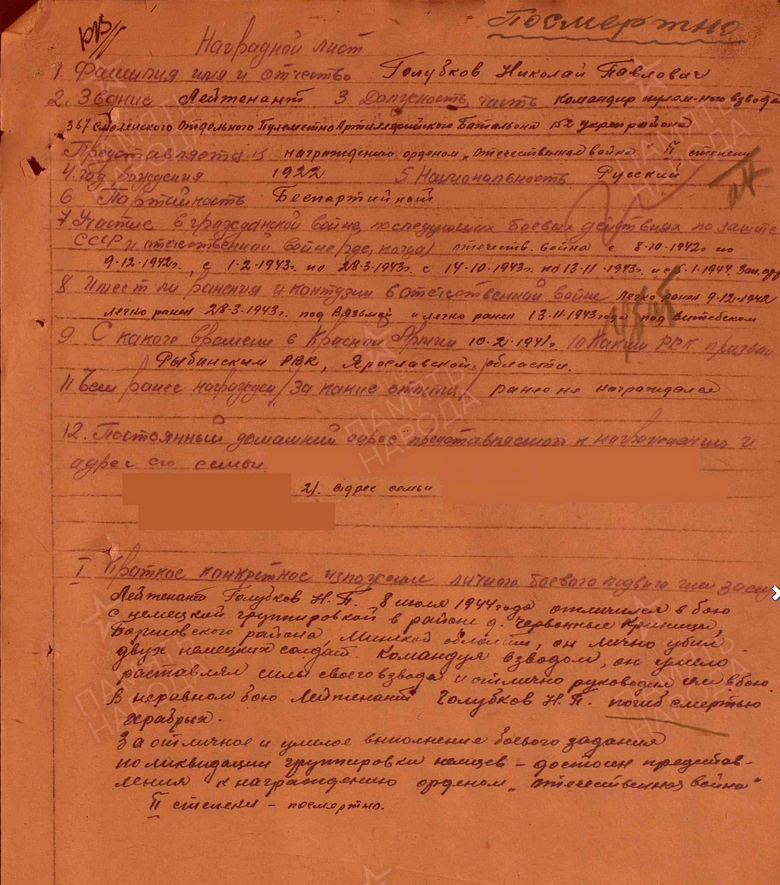 Посмертно
Наградной лист
1. Фамилия имя и отчество Голубков Николай Павлович
2. Звание Лейтенант 3. Должность, часть командир пулем-ного взвода
367 Смоленского Отдельного Пулеметно Артиллерийского Батальона 152 укрепрайона
Представляется к награждению орденом „Отечественная война" II степени
4. год рождения 1922 5. Национальность Русский
6 Партийность Беспартийный
7 Участие в гражданской войне, последующих боевых действиях по защите
СССР и отечественной войне (где, когда) отечеств. война с 8.10.1942г по
9.12.1942г., с 1.2.1943г. по 28.3.1943г. с 14.10.1943г по 13.11.1943г. и с 6.1.1944. Зап. фр
8 Имеет ли ранения и контузии в отечественной войне легко ранен 9.12.1942
легко ранен 28.3.1943г. под Вязьмой и легко ранен 13.11.1943года под Витебском
9. С какого времени в Красной Армии 10.2.1941г. 10 Каким РВК призван
Рыбинским РВК, Ярославской области.
11 Чем ранее награжден /за какие отличия/ ранее не награждался
12. Постоянный домашний адрес представляемого к награждению и
адрес его семьи
2). адрес семьи
I Краткое конкретное изложение личного боевого подвига или заслуг
Лейтенант Голубков Н. П. 8 июля 1944 года отличился в бою
с немецкой группировкой в районе д. Червонные Криницы
района, Минской области, он лично убил
двух немецких солдат. Командуя взводом, он умело
расставлял силы своего взвода и отлично руководил им в бою.
В неравном бою Лейтенант Голубков Н. П. погиб смертью
храбрых.
За отличное и умелое выполнение боевого задания
по ликвидации группировки немцев – достоин представ-
ления к награждению орденом „Отечественная война"
II степени – посмертно.
ПАМЯТЬ НАРОДА